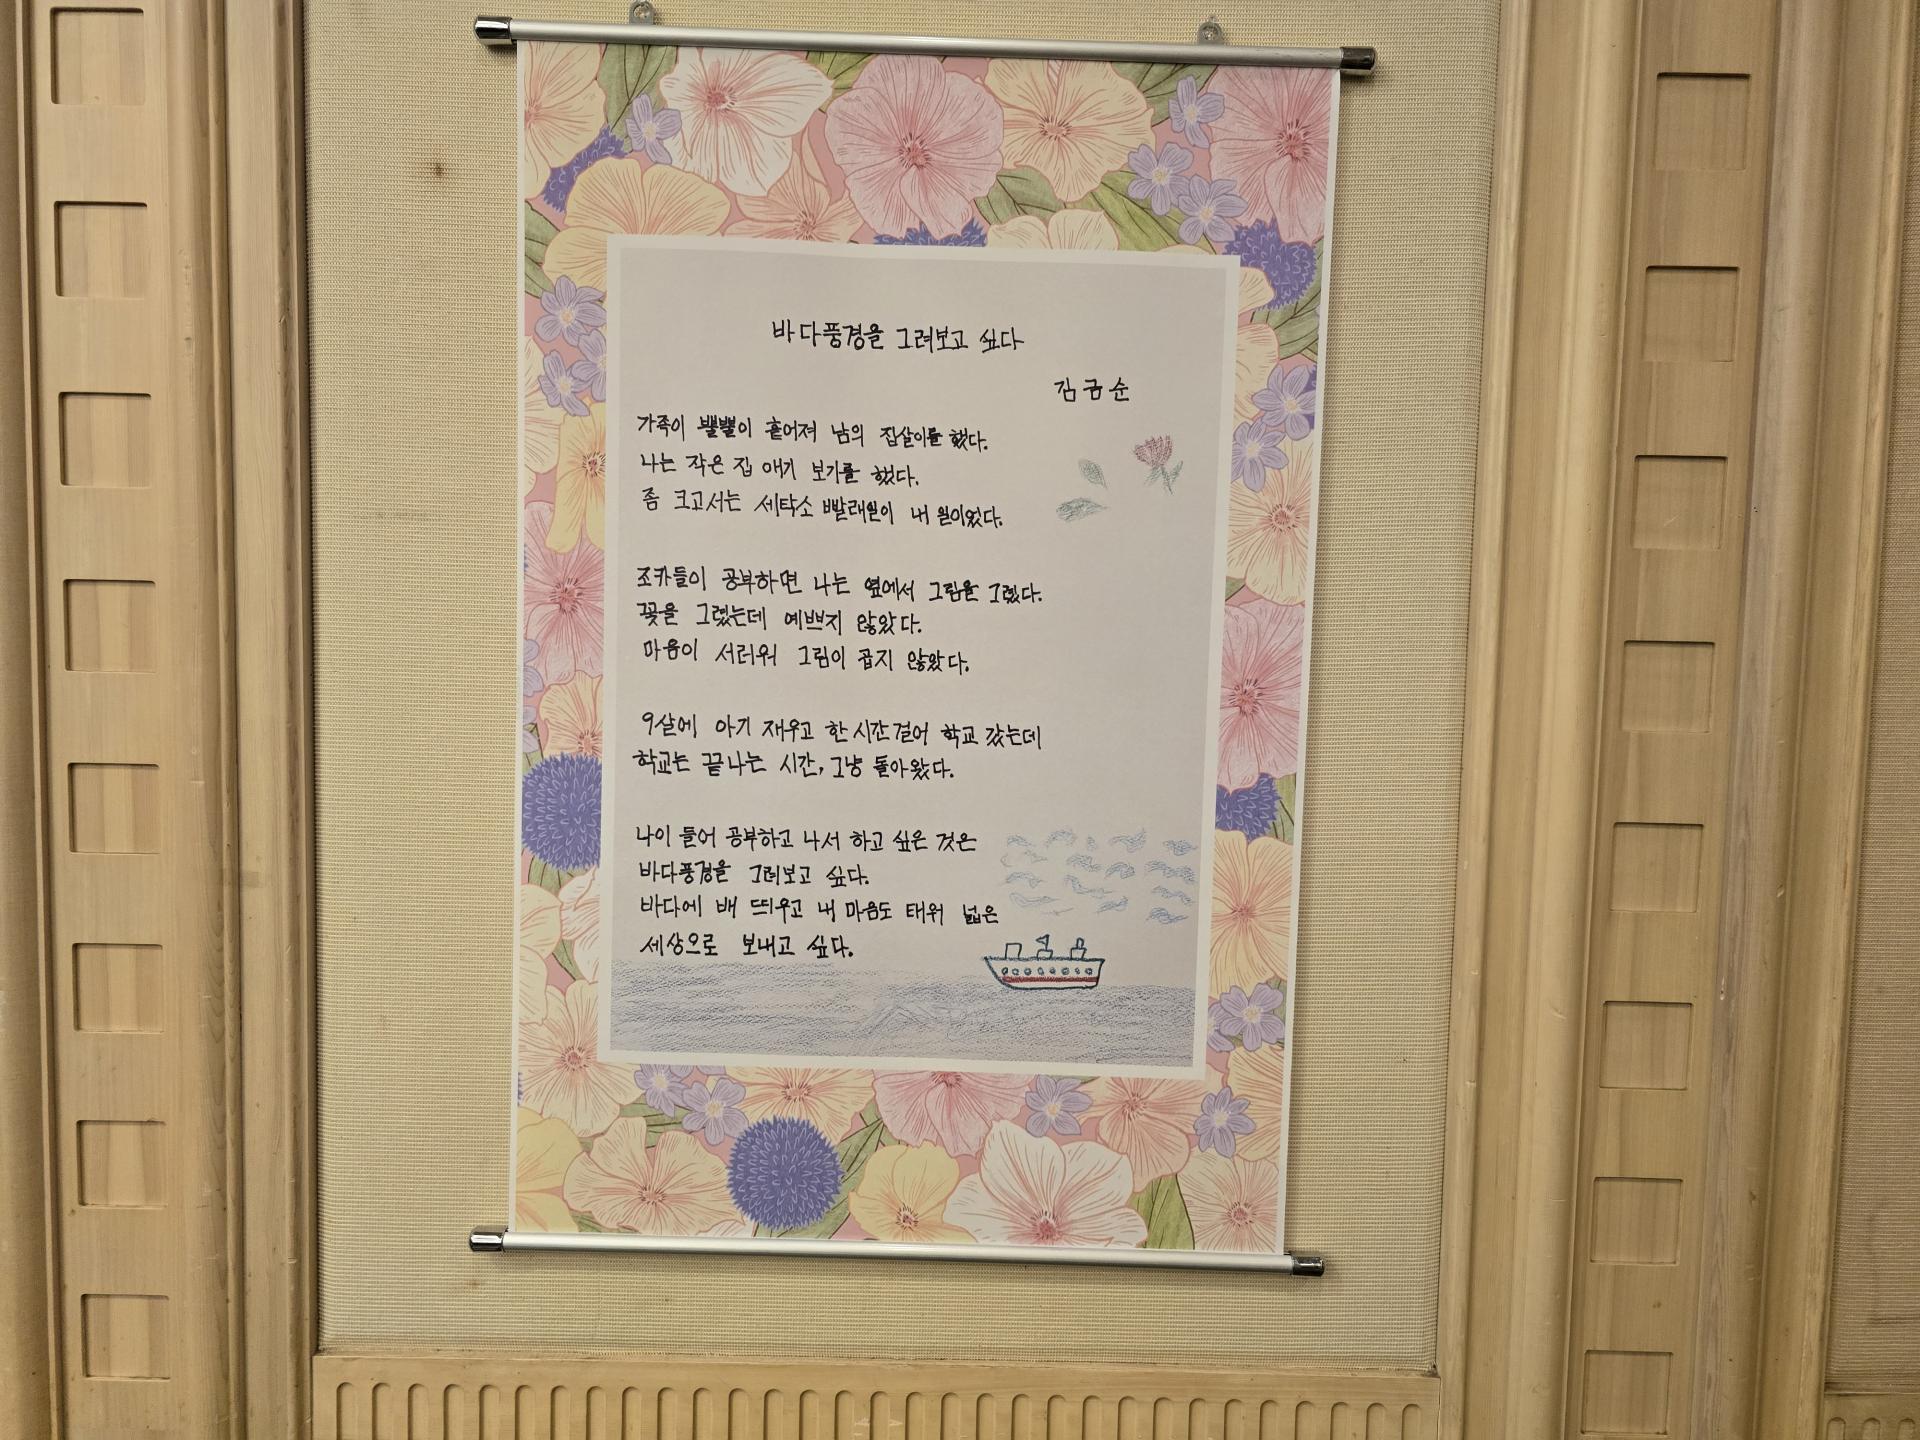 바다풍경을 그려보고 싶다
김금순
가족이 뿔뿔이 흩어져 남의 집살이를 했다.
나는 작은 집 애기 보기를 했다.
좀 크고서는 세탁소 빨래일이 내 일이었다.
조카들이 공부하면 나는 옆에서 그림을 그렸다.
꽃을 그렸는데 예쁘지 않았다.
마음이 서러워 그림이 곱지 않았다.
9살에 아기 재우고 한 시간 걸어 학교 갔는데
학교는 끝나는 시간, 그냥 돌아왔다.
나이 들어 공부하고 나서 하고 싶은 것은
바다풍경을 그려보고 싶다.
바다에 배 띄우고 내 마음도 태워 넓은
세상으로 보내고 싶다.